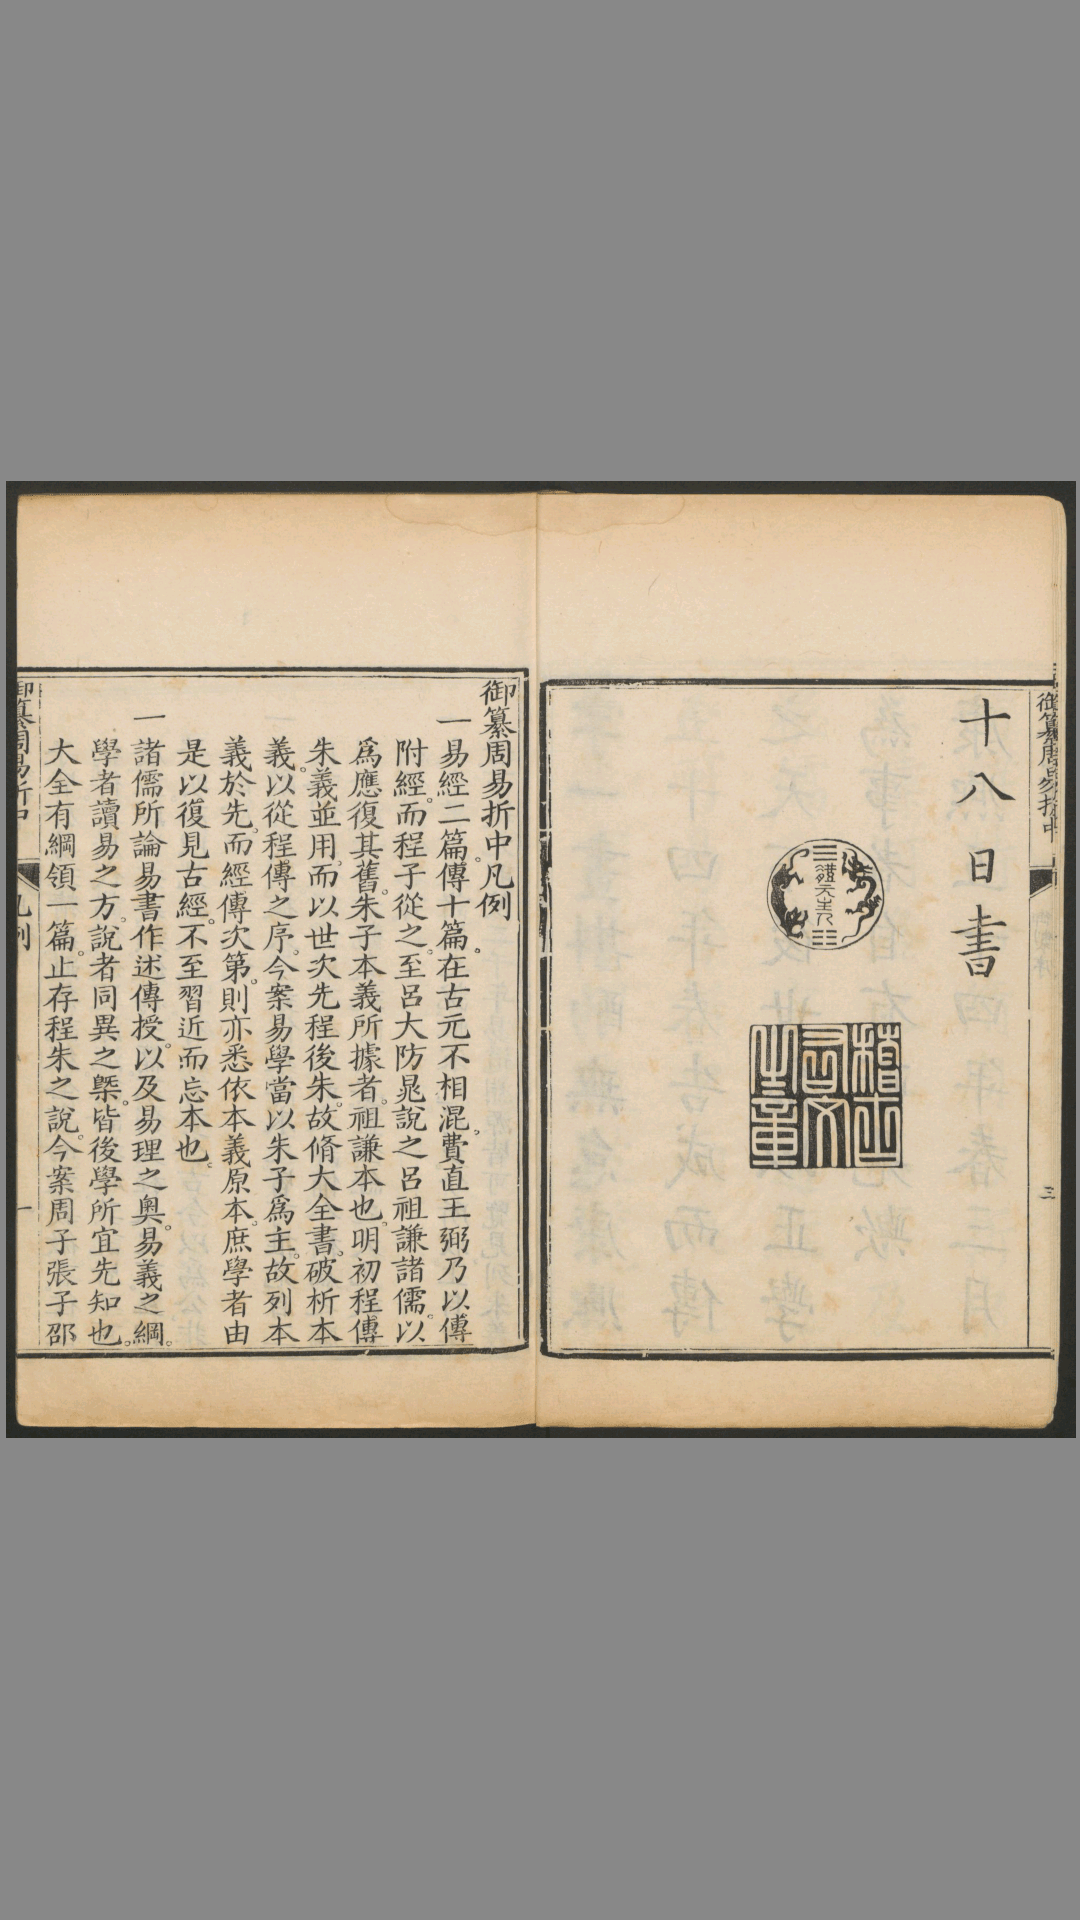 御纂周易折中
三
十八日書
體元主人
稽古
右文
之章
御纂周易折中凡例
一易經二篇。傳十篇。在古元不相混。費直王弼乃以傳
附經。而程子從之。至呂大防晁說之呂祖謙諸儒。以
爲應復其舊。朱子本義所據者。祖謙本也。明初程傳
朱義並用。而以世次先程後朱。故脩大全書。破析本
義。以從程傳之序。今案易學當以朱子爲主。故列本
義於先。而經傳次第。則亦悉依本義原本。庶學者由
是以復見古經。不至習近而忘本也。
一諸儒所論易書作述傳授。以及易理之奧。易義之綱。
學者讀易之方。說者同異之槩。皆後學所宜先知也。
大全有綱領一篇。止存程朱之說。今案周子張子邵
御纂周易折中
凡例
一